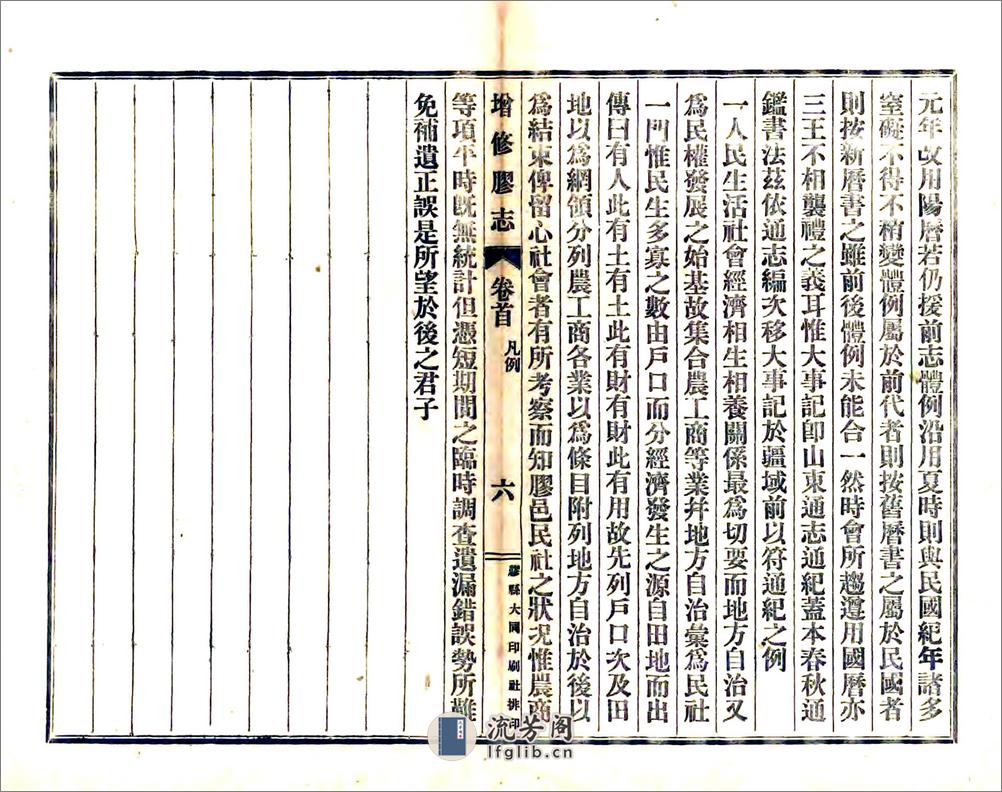 元年改用陽曆若仍援前志體例沿用夏時則與民國紀年諸多
窒礙不得不稍變體例屬於前代者則按舊曆書之屬於民國者
則按新曆書之雖前後體例未能合一然時會所趨遵用國曆亦
三王不相襲禮之義耳惟大事記卽山東通志通紀蓋本春秋通
鑑書法茲依通志編次移大事記於疆域前以符通紀之例
一人民生活社會經濟相生相養關係最爲切要而地方自治又
爲民權發展之始基故集合農工商等業幷地方自治彙爲民社
一門惟民生多寡之數由戶口而分經濟發生之源自田地而出
傳曰有人此有土有土此有財有財此有用故先列戶口次及田
地以爲綱領分列農工商各業以爲條目附列地方自治於後以
爲結束俾留心社會者有所考察而知膠邑民社之狀況惟農商
增修膠志 卷首 凡例 六 膠縣大同印刷社排印
等項平時旣無統計但憑短期間之臨時調查遺漏錯誤勢所難
免補遺正誤是所望於後之君子
流芳阁
lfglib.cn